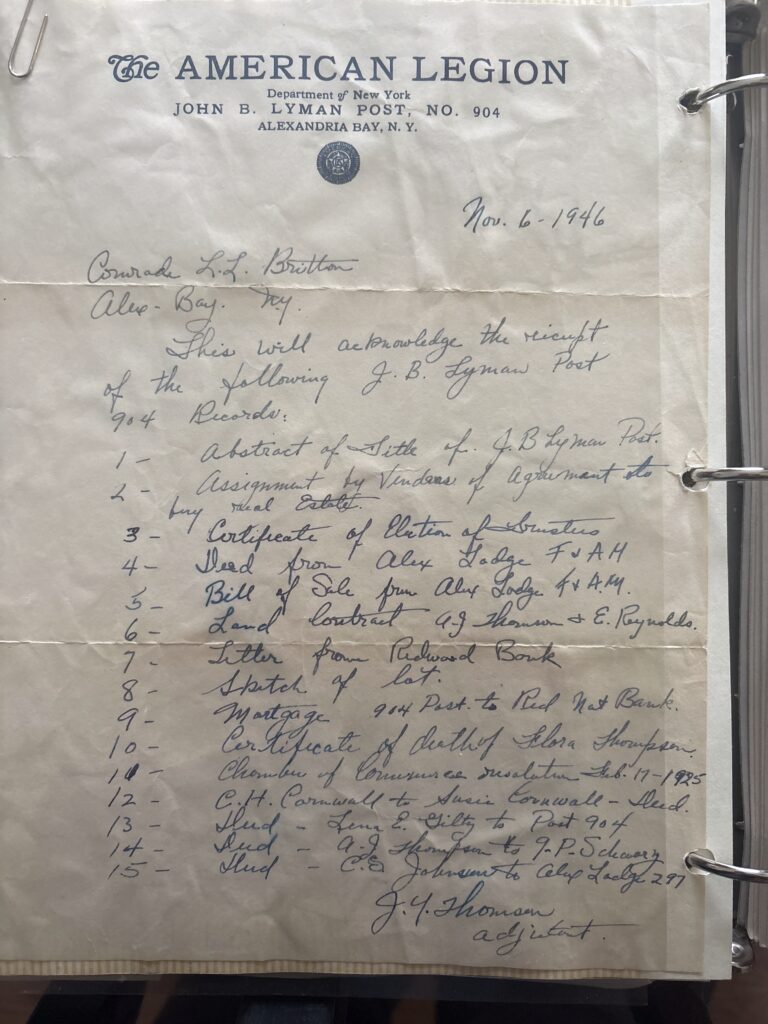 The AMERICAN LEGION
Department of New York
JOHN B. LYMAN POST, NO. 904
ALEXANDRIA BAY, N. Y.
Nov. 6 - 1946
Comrade L.L. Britton
Alex - Bay. Ny.
This will acknowledge the reicupt
of the following J. B. Lyman Post
904 Records:
1 - Abstract of Title of J.B Lyman Post.
2 - Assignment by Venders of Agreemant to
buy real Estate.
3 - Certificate of Election of Trustees
4 - Deed from Alex Lodge F & A M
5 - Bill of Sale from Alex Lodge F & A.M.
6 - Land Contract A.J Thomson & E. Reynolds.
7 - Letter from Redwood Bank
8 - Sketch of lot.
9 - Mortgage 904 Post. to Red Nat Bank.
10 - Certificate of death of Flora Thompson.
11 - Chamber of Commerce resolution Feb. 17-1925
12 - C.H. Cornwall to Susie Cornwall - Deed.
13 - Deed - Lena E. to Post 904
14 - Deed - A.J Thompson to J.P. Schwarz
15 - Deed - C.E Johnson to Alex Lodge 297
J. Y. Thomson
adjutant.